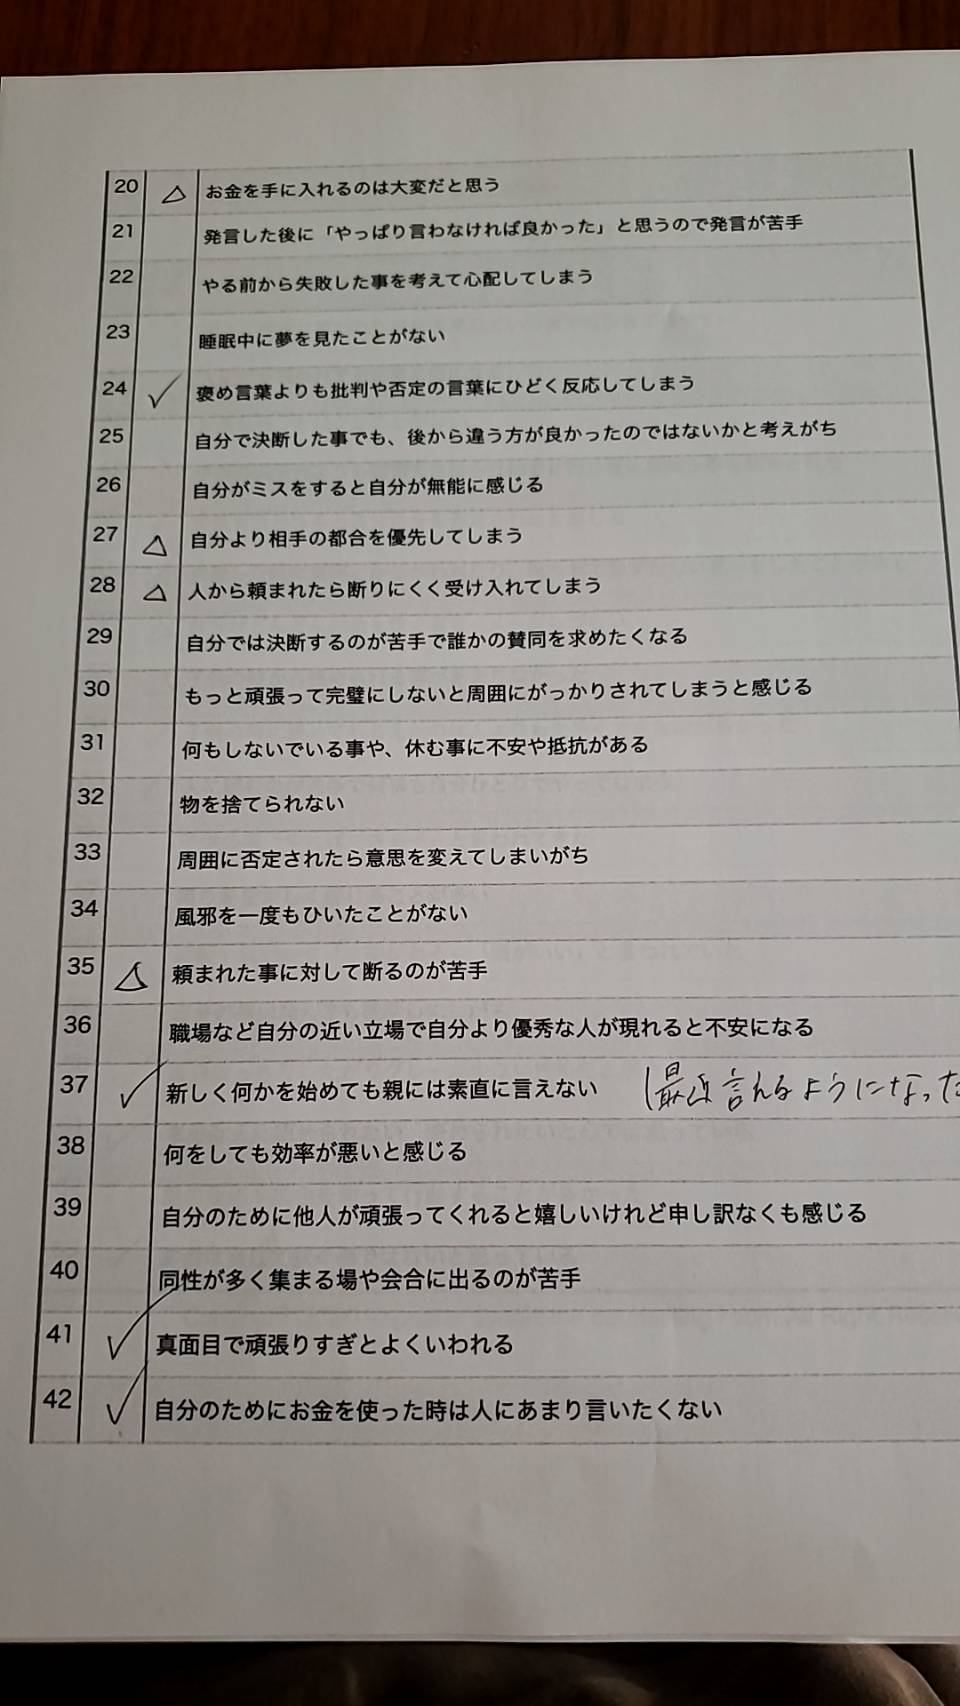 20 △ お金を手に入れるのは大変だと思う
21 発言した後に「やっぱり言わなければ良かった」と思うので発言が苦手
22 やる前から失敗した事を考えて心配してしまう
23 睡眠中に夢を見たことがない
24 ✓ 褒め言葉よりも批判や否定の言葉にひどく反応してしまう
25 自分で決断した事でも、後から違う方が良かったのではないかと考えがち
26 自分がミスをすると自分が無能に感じる
27 △ 自分より相手の都合を優先してしまう
28 △ 人から頼まれたら断りにくく受け入れてしまう
29 自分では決断するのが苦手で誰かの賛同を求めたくなる
30 もっと頑張って完璧にしないと周囲にがっかりされてしまうと感じる
31 何もしないでいる事や、休む事に不安や抵抗がある
32 物を捨てられない
33 周囲に否定されたら意思を変えてしまいがち
34 風邪を一度もひいたことがない
35 △ 頼まれた事に対して断るのが苦手
36 職場など自分の近い立場で自分より優秀な人が現れると不安になる
37 ✓ 新しく何かを始めても親には素直に言えない (最近言えるようになった
38 何をしても効率が悪いと感じる
39 自分のために他人が頑張ってくれると嬉しいけれど申し訳なくも感じる
40 同性が多く集まる場や会合に出るのが苦手
41 ✓ 真面目で頑張りすぎとよくいわれる
42 ✓ 自分のためにお金を使った時は人にあまり言いたくない